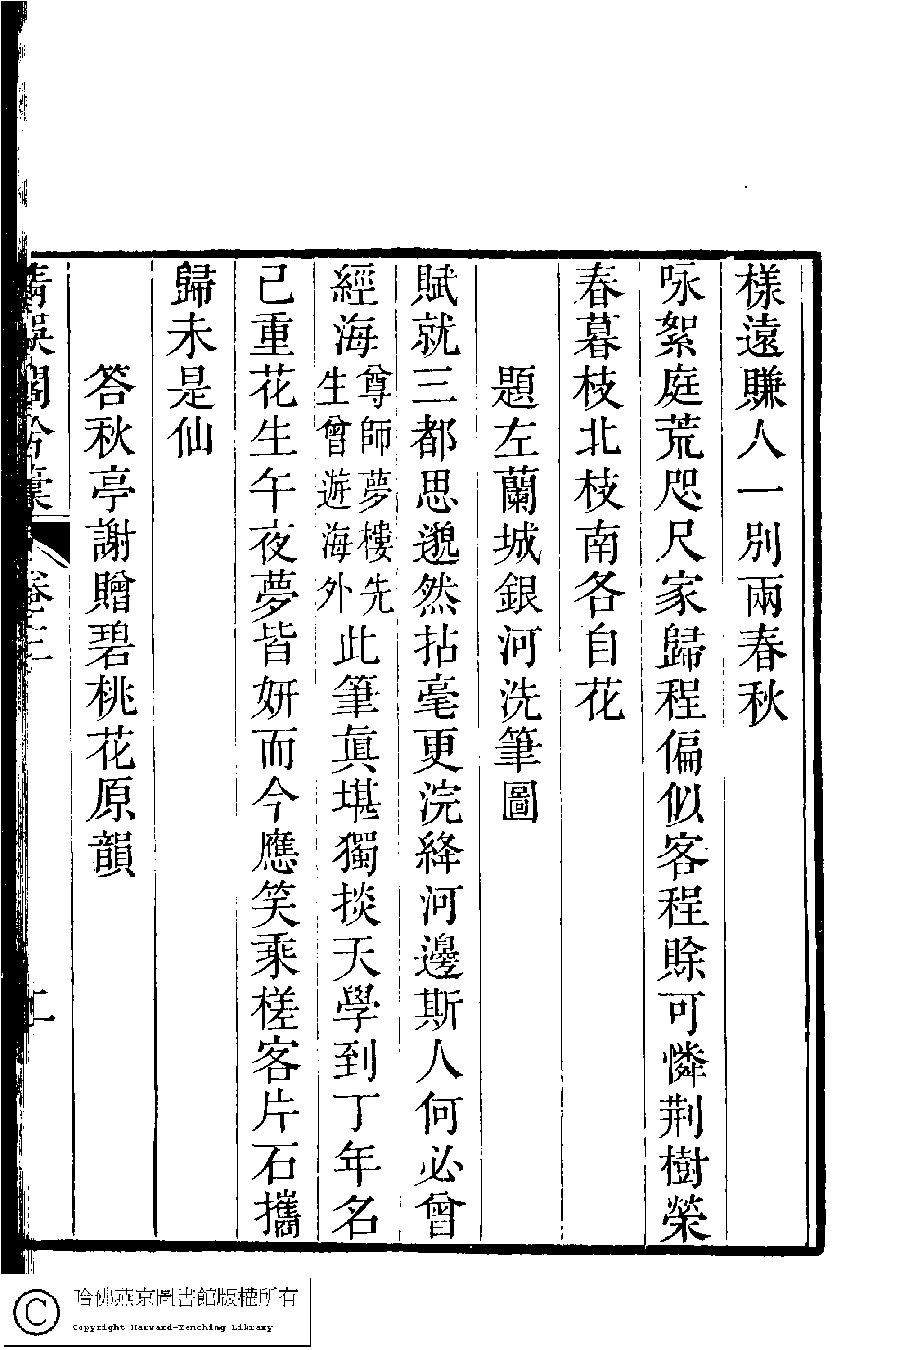 樣遠賺人一別兩春秋
咏絮庭荒咫尺家歸程偏似客程賒可憐荆樹榮
春暮枝北枝南各自花
題左蘭城銀河洗筆圖
賦就三都思邈然拈毫更浣絳河邊斯人何必曾
經海尊師夢樓先生曾遊海外此筆眞堪獨掞天學到丁年名
已重花生午夜夢皆妍而今應笑乘槎客片石攜
歸未是仙
答秋亭謝贈碧桃花原韻
卷三
哈佛燕京圖書館版權所有
Copyright Harvard-Yenching Library